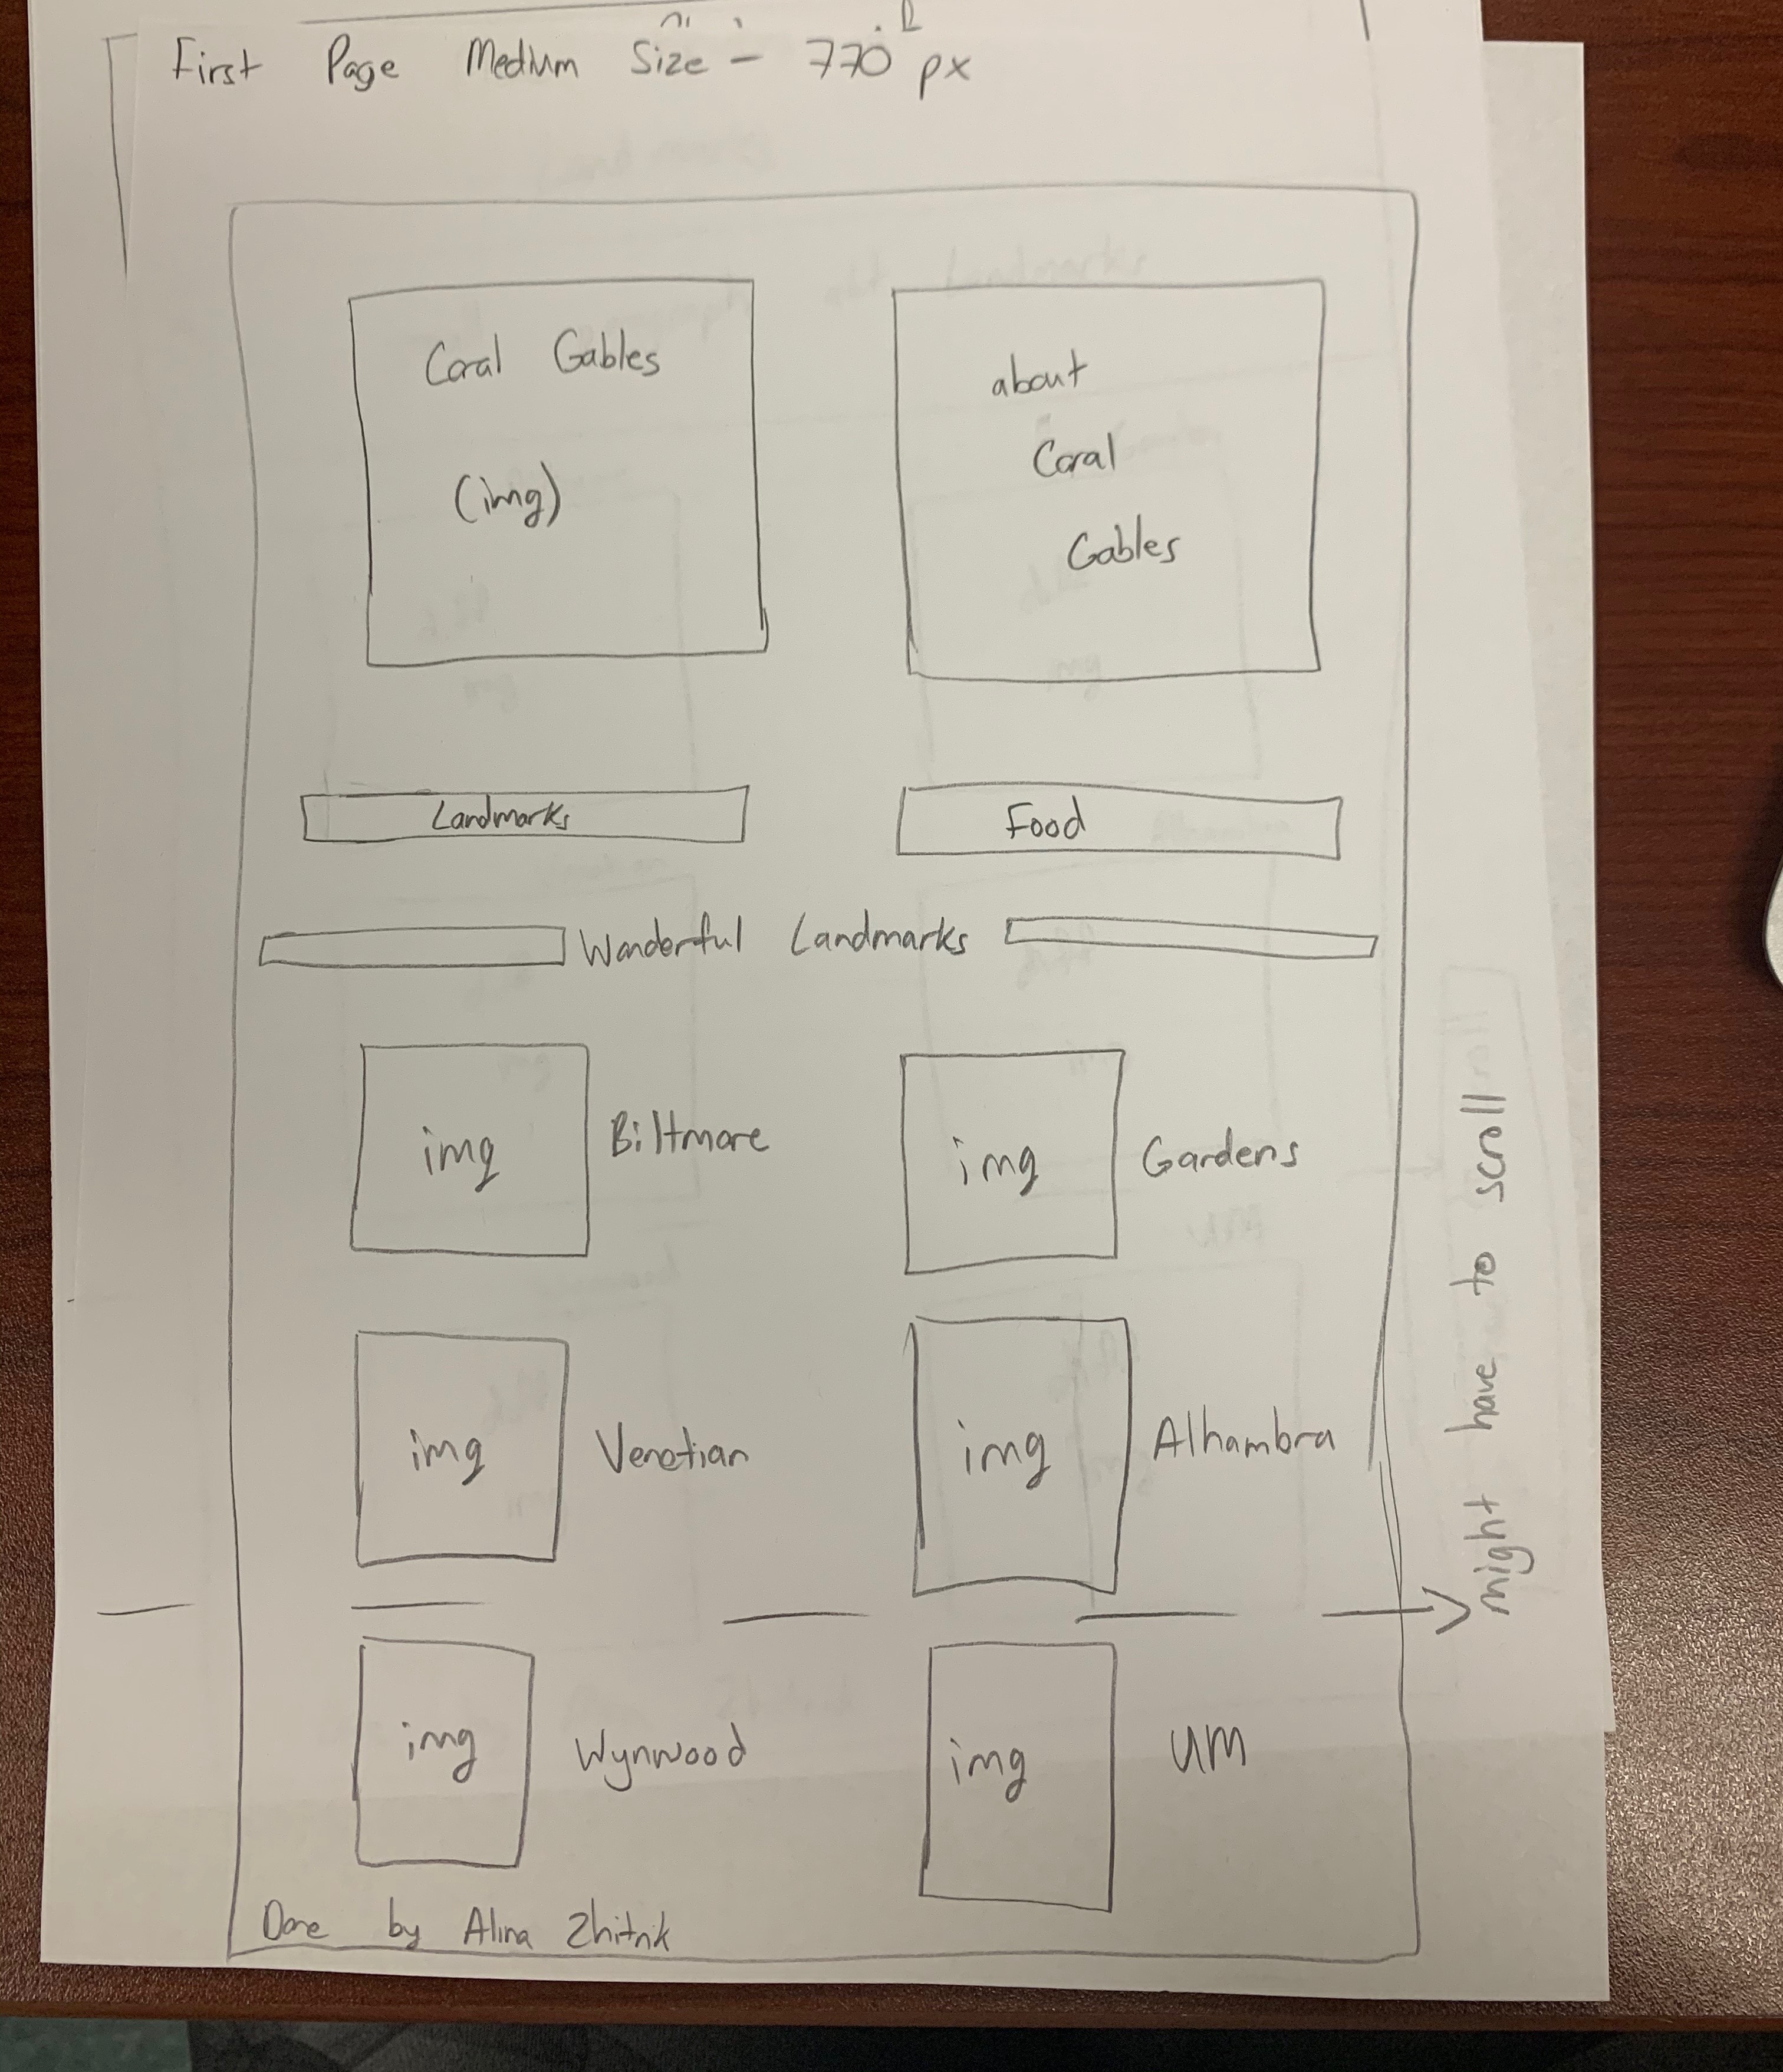 First Page Medium Size - 770 px
Coral Gables
(img)
about
Coral
Gables
Landmarks
Food
Wonderful Landmarks
img Biltmore
img Gardens
img Venetian
img Alhambra
might have to scroll
img Wynwood
img UM
Done by Alina Zhitnik